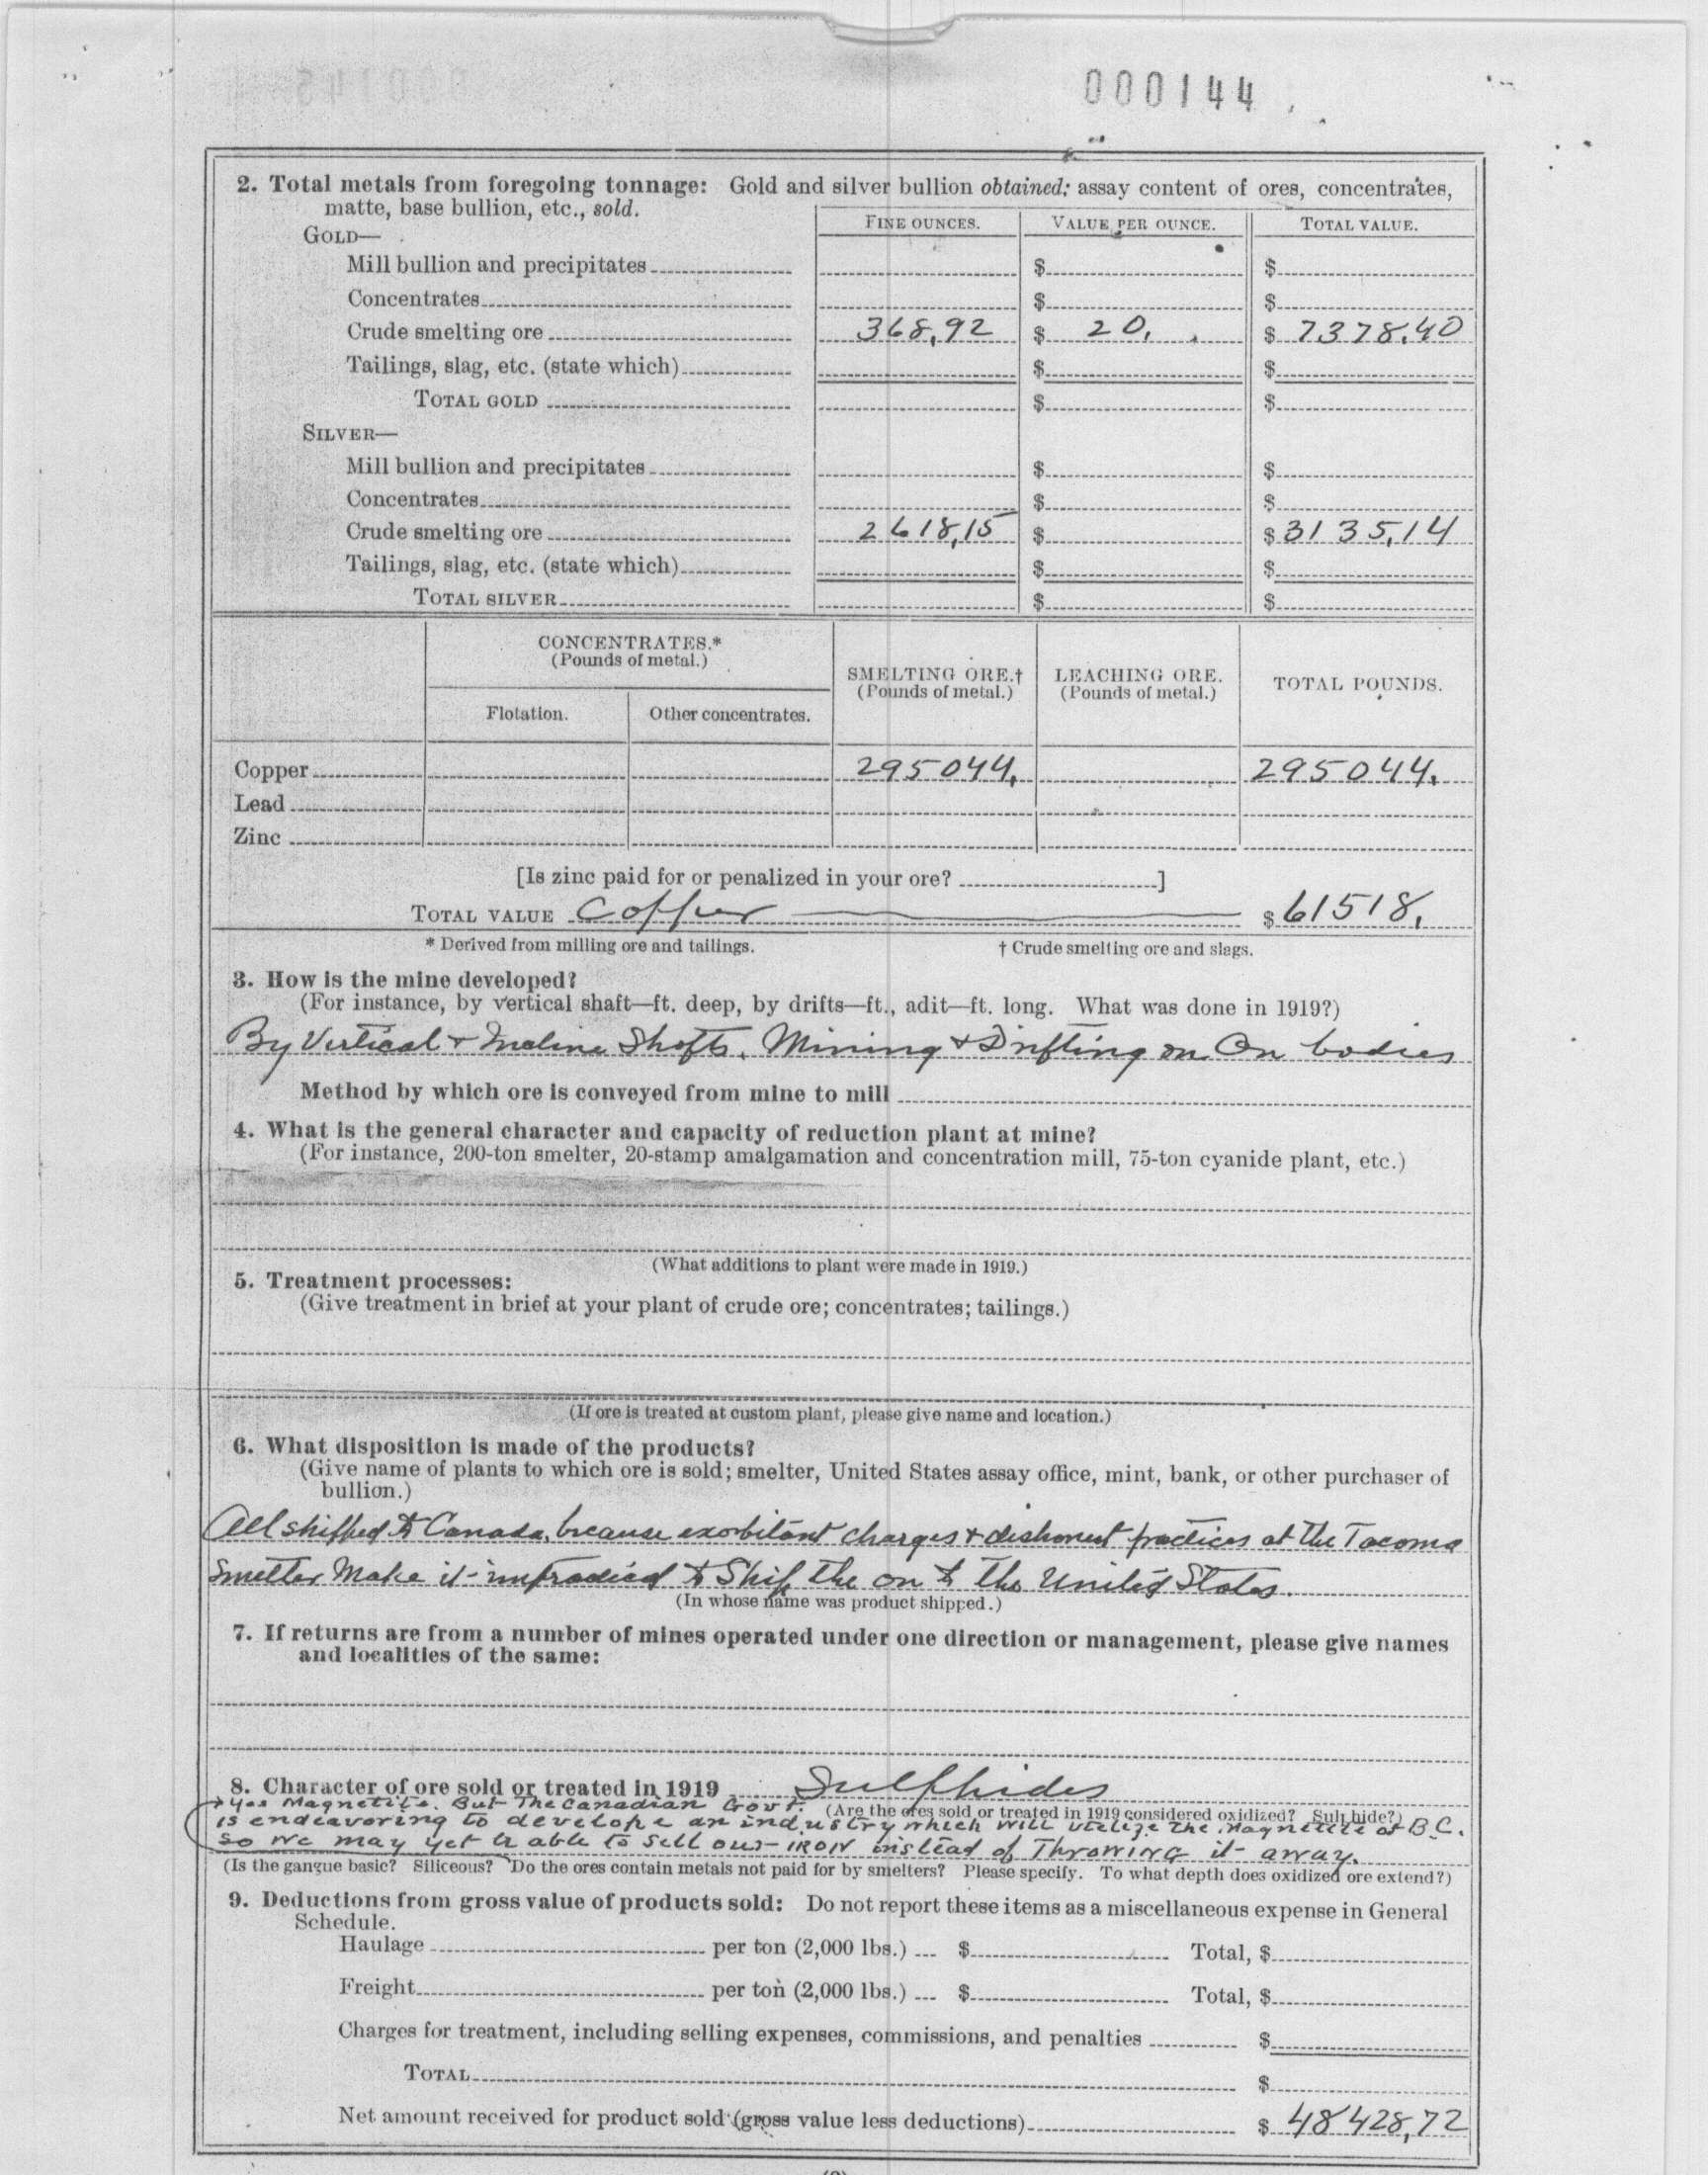 000144
2. Total metals from foregoing tonnage: Gold and silver bullion obtained; assay content of ores, concentrates,
matte, base bullion, etc., sold.
FINE OUNCES. VALUE PER OUNCE. TOTAL VALUE.
GOLD—
Mill bullion and precipitates $ $
Concentrates $ $
Crude smelting ore 368,92 $ 20, $ 7378,40
Tailings, slag, etc. (state which) $ $
TOTAL GOLD $ $
SILVER—
Mill bullion and precipitates $ $
Concentrates $ $
Crude smelting ore 2618,15 $ $ 3135,14
Tailings, slag, etc. (state which) $ $
TOTAL SILVER $ $
CONCENTRATES.*
(Pounds of metal.)
SMELTING ORE.† LEACHING ORE. TOTAL POUNDS.
(Pounds of metal.) (Pounds of metal.)
Flotation. Other concentrates.
Copper 295044. 295044.
Lead
Zinc
[Is zinc paid for or penalized in your ore? ]
TOTAL VALUE Copper $ 61518,
* Derived from milling ore and tailings. † Crude smelting ore and slags.
3. How is the mine developed?
(For instance, by vertical shaft—ft. deep, by drifts—ft., adit—ft. long. What was done in 1919?)
By Vertical + Incline Shafts. Mining + Drifting on Ore bodies
Method by which ore is conveyed from mine to mill
4. What is the general character and capacity of reduction plant at mine?
(For instance, 200-ton smelter, 20-stamp amalgamation and concentration mill, 75-ton cyanide plant, etc.)
(What additions to plant were made in 1919.)
5. Treatment processes:
(Give treatment in brief at your plant of crude ore; concentrates; tailings.)
(If ore is treated at custom plant, please give name and location.)
6. What disposition is made of the products?
(Give name of plants to which ore is sold; smelter, United States assay office, mint, bank, or other purchaser of
bullion.)
All shipped to Canada, because exorbitant charges + dishonest practices at the Tacoma
Smelter Make it impractical to Ship the ore to the United States.
(In whose name was product shipped.)
7. If returns are from a number of mines operated under one direction or management, please give names
and localities of the same:
8. Character of ore sold or treated in 1919 Sulphides
Yes Magnetite. But The Canadian Govt. (Are the ores sold or treated in 1919 considered oxidized? Sulphide?)
is endeavoring to develope an industry which will utelize the Magnetite of B.C.
So we may yet be able to sell our IRON instead of Throwing it away.
(Is the gangue basic? Siliceous? Do the ores contain metals not paid for by smelters? Please specify. To what depth does oxidized ore extend?)
9. Deductions from gross value of products sold: Do not report these items as a miscellaneous expense in General
Schedule.
Haulage per ton (2,000 lbs.) $ Total, $
Freight per ton (2,000 lbs.) $ Total, $
Charges for treatment, including selling expenses, commissions, and penalties $
TOTAL $
Net amount received for product sold (gross value less deductions) $ 48428,72